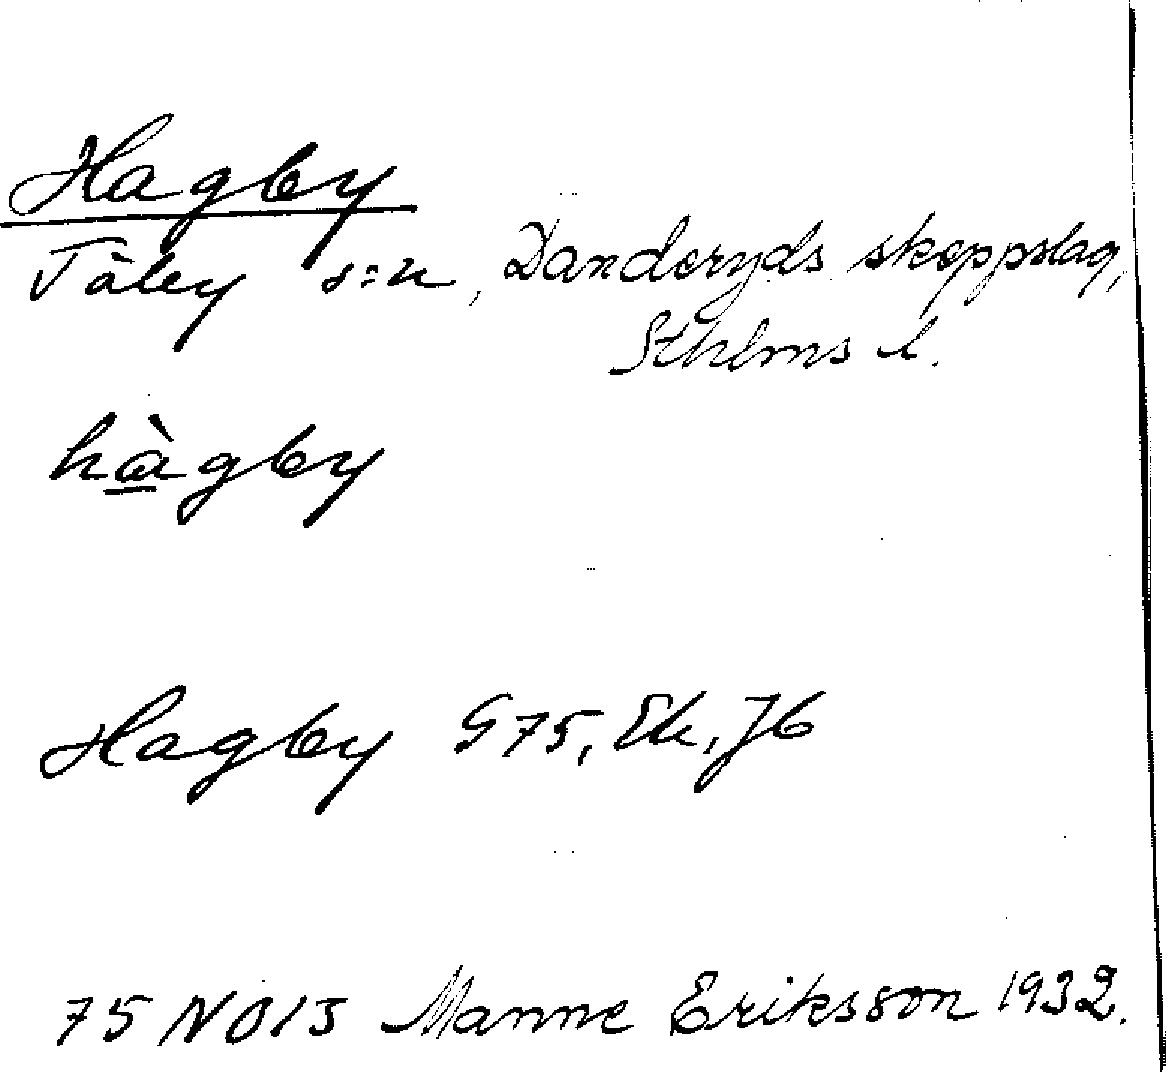 Hagby
Täby s:n, Danderyds skeppslag,
Sthlms l.
hàgby
Hagby G 75, Ek, Jb
75 NO 13 Manne Eriksson 1932.